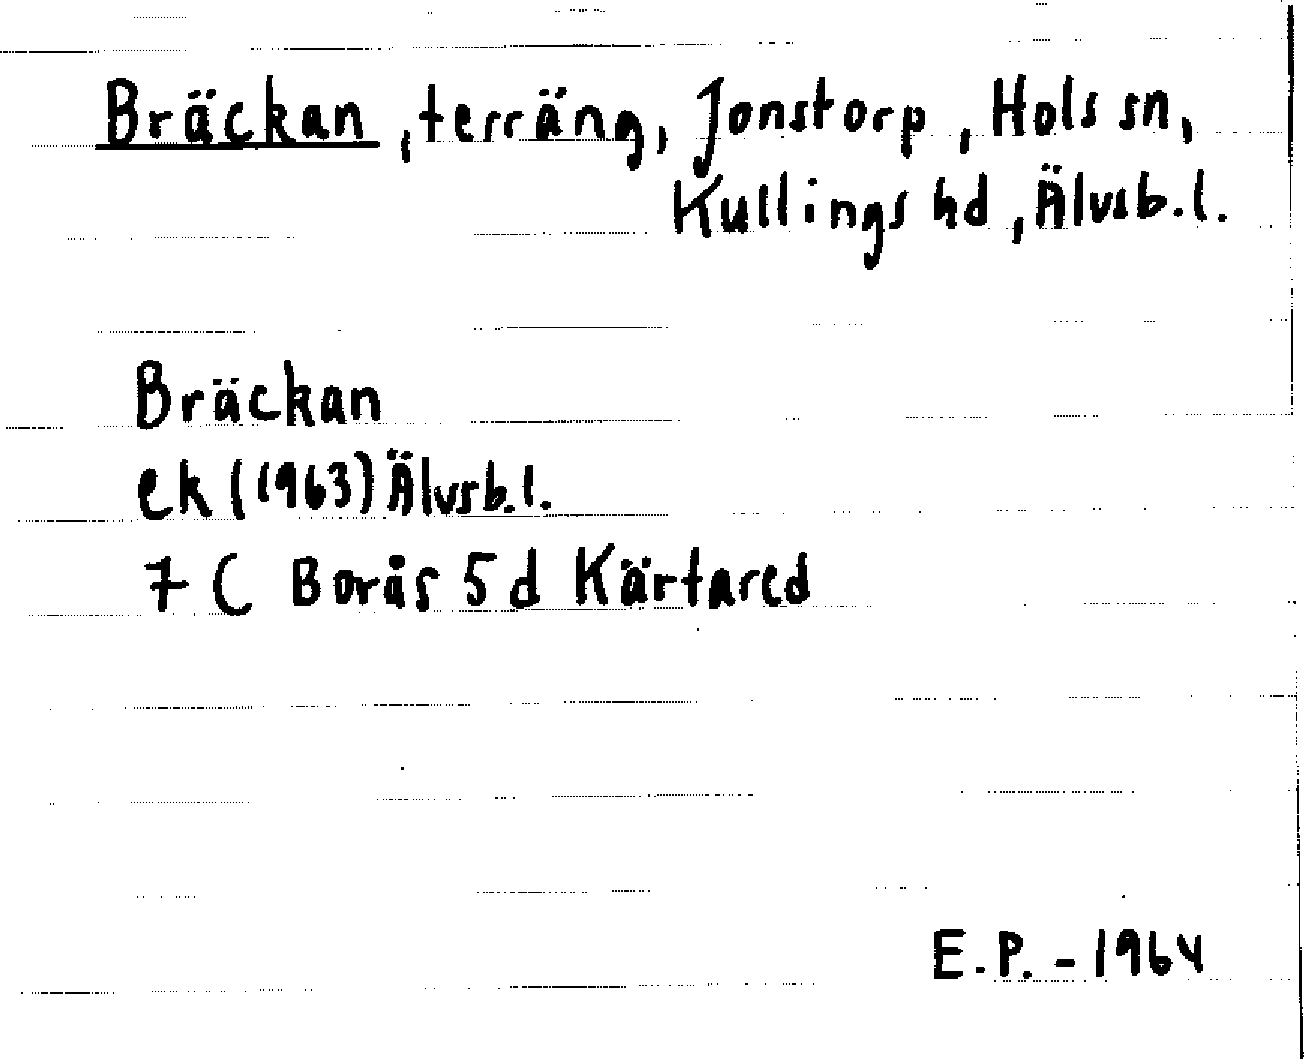 Bräckan, terräng, Jonstorp, Hols sn,
Kullings hd, Älvsb.l.
Bräckan
ek (1963) Älvsb.l.
7 C Borås 5 d Kärtared
E.P. - 1964